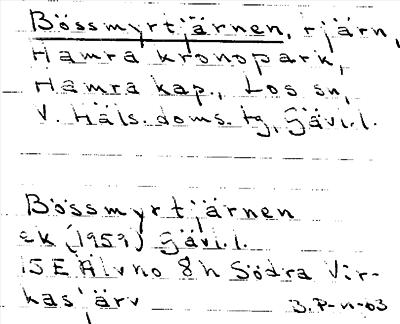 Bössmyrtjärnen, tjärn,
Hamra kronopark,
Hamra kap., Los sn,
V. Häls. doms. tg, Gävl. l.
Bössmyrtjärnen
ek (1959) Gävl. l.
15E Älvho 8h Södra Vir-
kasjärv